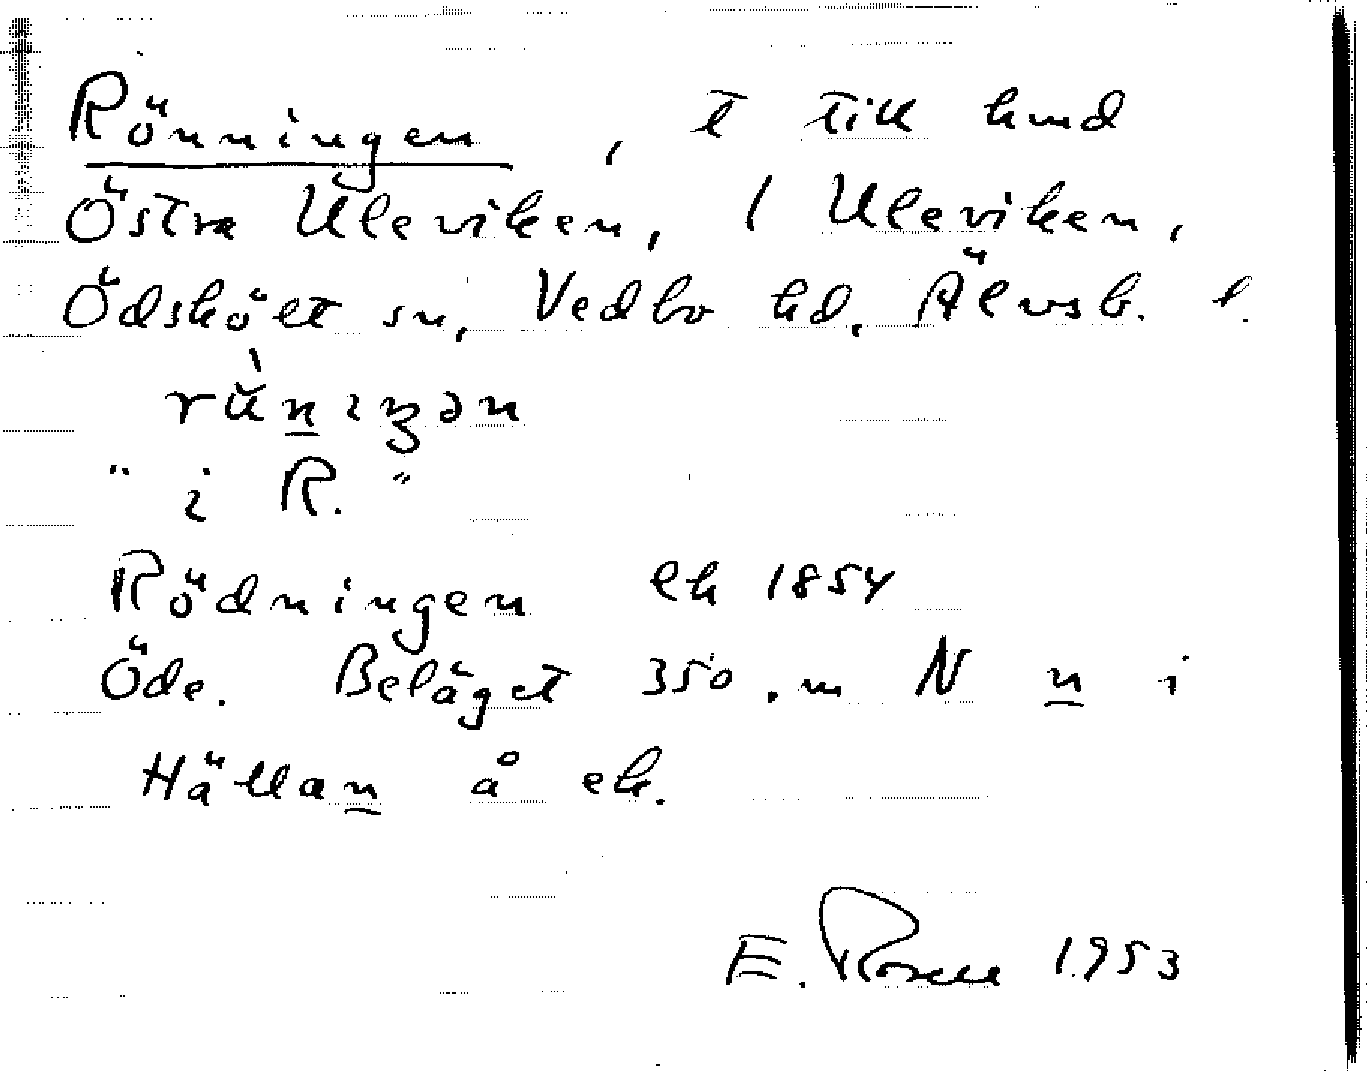 Rönningen, t till hmd
Östra Uleviken, 1 Uleviken,
Ödskölt sn, Vedbo hd, Älvsb. l.
" i R. "
Rödningen ek 1854
Öde. Beläget 350 m N n i
Hällan å ek.
E. Rosell 1953